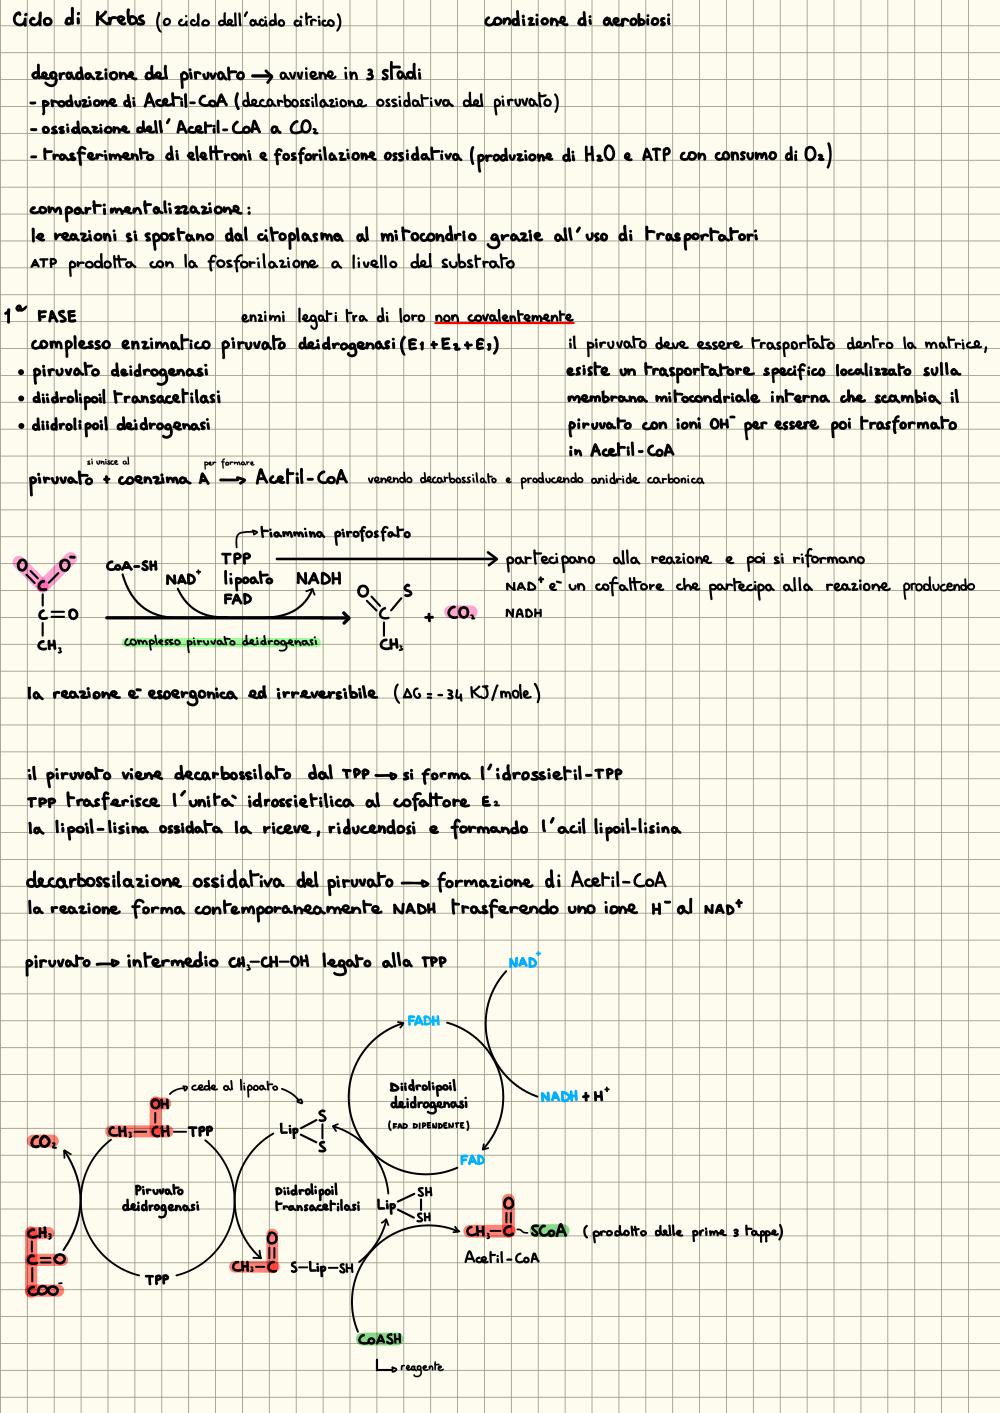 Ciclo di Krebs (o ciclo dell'acido citrico) condizione di aerobiosi
degradazione del piruvato → avviene in 3 stadi
- produzione di Acetil-CoA (decarbossilazione ossidativa del piruvato)
- ossidazione dell'Acetil-CoA a CO₂
- trasferimento di elettroni e fosforilazione ossidativa (produzione di H₂O e ATP con consumo di O₂)
compartimentalizzazione:
le reazioni si spostano dal citoplasma al mitocondrio grazie all'uso di trasportatori
ATP prodotta con la fosforilazione a livello del substrato
1ª FASE
enzimi legati tra di loro non covalentemente
complesso enzimatico piruvato deidrogenasi (E₁+E₂+E₃)
• piruvato deidrogenasi
• diidrolipoil transacetilasi
• diidrolipoil deidrogenasi
il piruvato deve essere trasportato dentro la matrice,
esiste un trasportatore specifico localizzato sulla
membrana mitocondriale interna che scambia il
piruvato con ioni OH⁻ per essere poi trasformato
in Acetil-CoA
si unisce al per formare
piruvato + coenzima A → Acetil-CoA venendo decarbossilato e producendo anidride carbonica
tiammina pirofosfato
TPP
lipoato
FAD
CoA-SH
NAD⁺
NADH
complesso piruvato deidrogenasi
O O⁻
C
C=O
CH₃
O S
C
CH₃
+ CO₂
partecipano alla reazione e poi si riformano
NAD⁺ è un cofattore che partecipa alla reazione producendo
NADH
la reazione è esoergonica ed irreversibile (ΔG = -34 KJ/mole)
il piruvato viene decarbossilato dal TPP → si forma l'idrossietil-TPP
TPP trasferisce l'unità idrossietilica al cofattore E₂
la lipoil-lisina ossidata la riceve, riducendosi e formando l'acil lipoil-lisina
decarbossilazione ossidativa del piruvato → formazione di Acetil-CoA
la reazione forma contemporaneamente NADH trasferendo uno ione H⁻ al NAD⁺
piruvato → intermedio CH₃-CH-OH legato alla TPP
NAD⁺
FADH
Diidrolipoil
deidrogenasi
(FAD DIPENDENTE)
NADH + H⁺
FAD
cede al lipoato
OH
CH₃-CH-TPP
CO₂
Lip S
S
Piruvato
deidrogenasi
Diidrolipoil
transacetilasi
Lip SH
SH
O
CH₃-C~SCoA (prodotto delle prime 3 tappe)
Acetil-CoA
CH₃
C=O
COO⁻
O
CH₃-C S-Lip-SH
TPP
CoASH
reagente